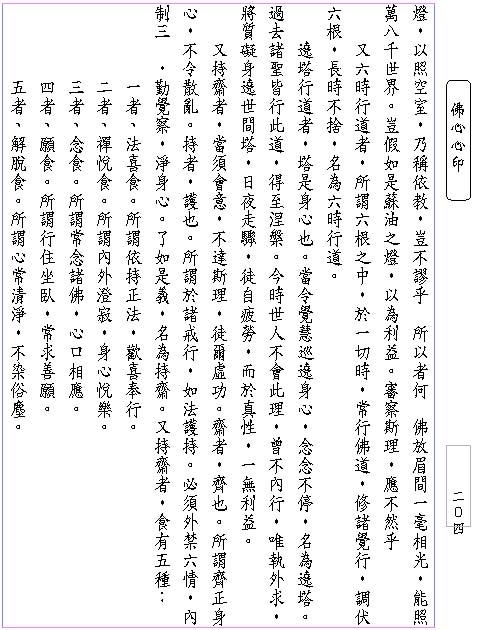 燈，以照空室，乃稱依教，豈不謬乎　所以者何　佛放眉間一毫相光，能照
萬八千世界。豈假如是蘇油之燈，以為利益。審察斯理，應不然乎
又六時行道者，所謂六根之中，於一切時，常行佛道，修諸覺行，調伏
六根，長時不捨，名為六時行道。
遶塔行道者，塔是身心也。當令覺慧巡遶身心，念念不停，名為遶塔。
過去諸聖皆行此道，得至涅槃。今時世人不會此理，曾不內行，唯執外求，
將質礙身遶世間塔，日夜走驟，徒自疲勞，而於真性，一無利益。
又持齋者，當須會意，不達斯理，徒爾虛功。齋者，齊也。所謂齊正身
心，不令散亂。持者，護也。所謂於諸戒行，如法護持。必須外禁六情，內
制三　，勤覺察，淨身心。了如是義，名為持齋。又持齋者，食有五種：
一者、法喜食。所謂依持正法，歡喜奉行。
二者、禪悅食。所謂內外澄寂，身心悅樂。
三者、念食。所謂常念諸佛，心口相應。
四者、願食。所謂行住坐臥，常求善願。
五者、解脫食。所謂心常清淨，不染俗塵。
佛心心印
二〇四